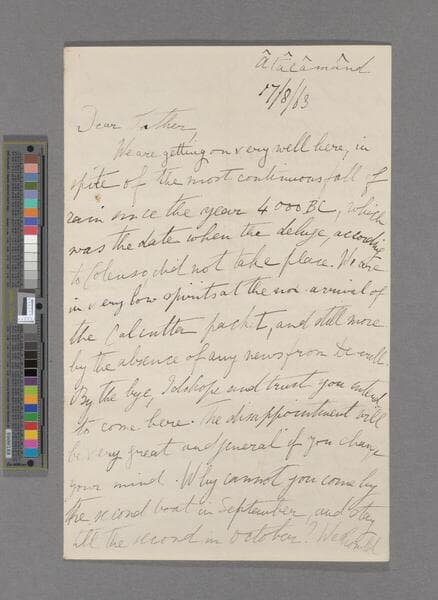 Âtâcâmând
17/8/63
Dear Father,
We are getting on very well here, in
spite of the most continuous fall of
rain since the year 4000 BC, which
was the date when the deluge, according
to Colenso, did not take place. We are
in very low spirits at the non-arrival of
the Calcutta packet, and still more
by the absence of any news from
By the bye, I do hope and trust you intend
to come here. The disappointment will
be very great and general if you change
your mind. Why cannot you come by
the second boat in September, and stay
till the second in October? We